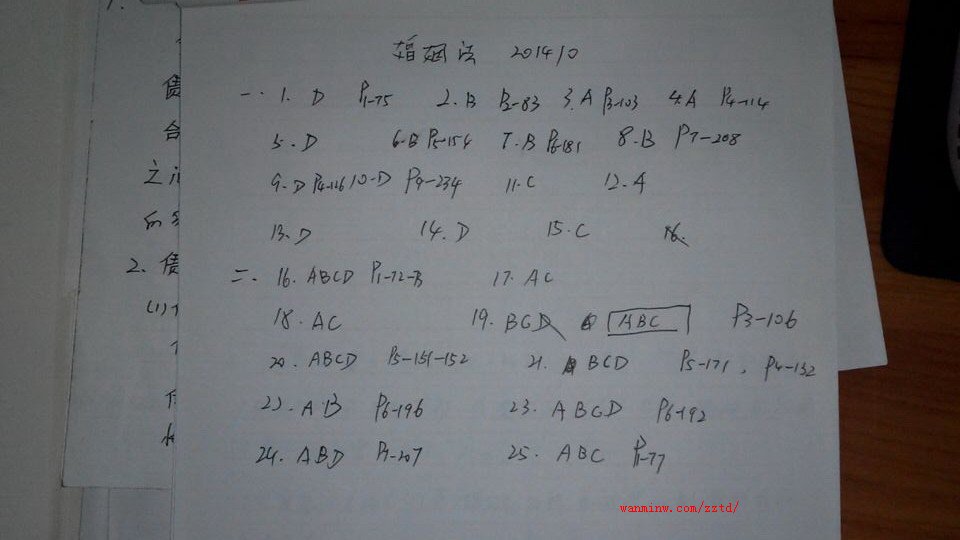 1.
债
合
之
2. 债
(1)
婚姻法 201410
一. 1. D P1-75 2. B P2-83 3. A P3-103 4. A P4-114
5. D 6. B P5-154 7. B P6-181 8. B P7-208
9. D P4-116 10. D P9-234 11. C 12. A
13. D 14. D 15. C 16.
二. 16. ABCD P1-72-73 17. AC
18. AC 19. BCD ABC P3-106
20. ABCD P5-151-152 21. BCD P5-171, P4-132
22. AB P6-196 23. ABCD P6-192
24. ABD P7-207 25. ABC P1-77
wanminw.com/zztd/